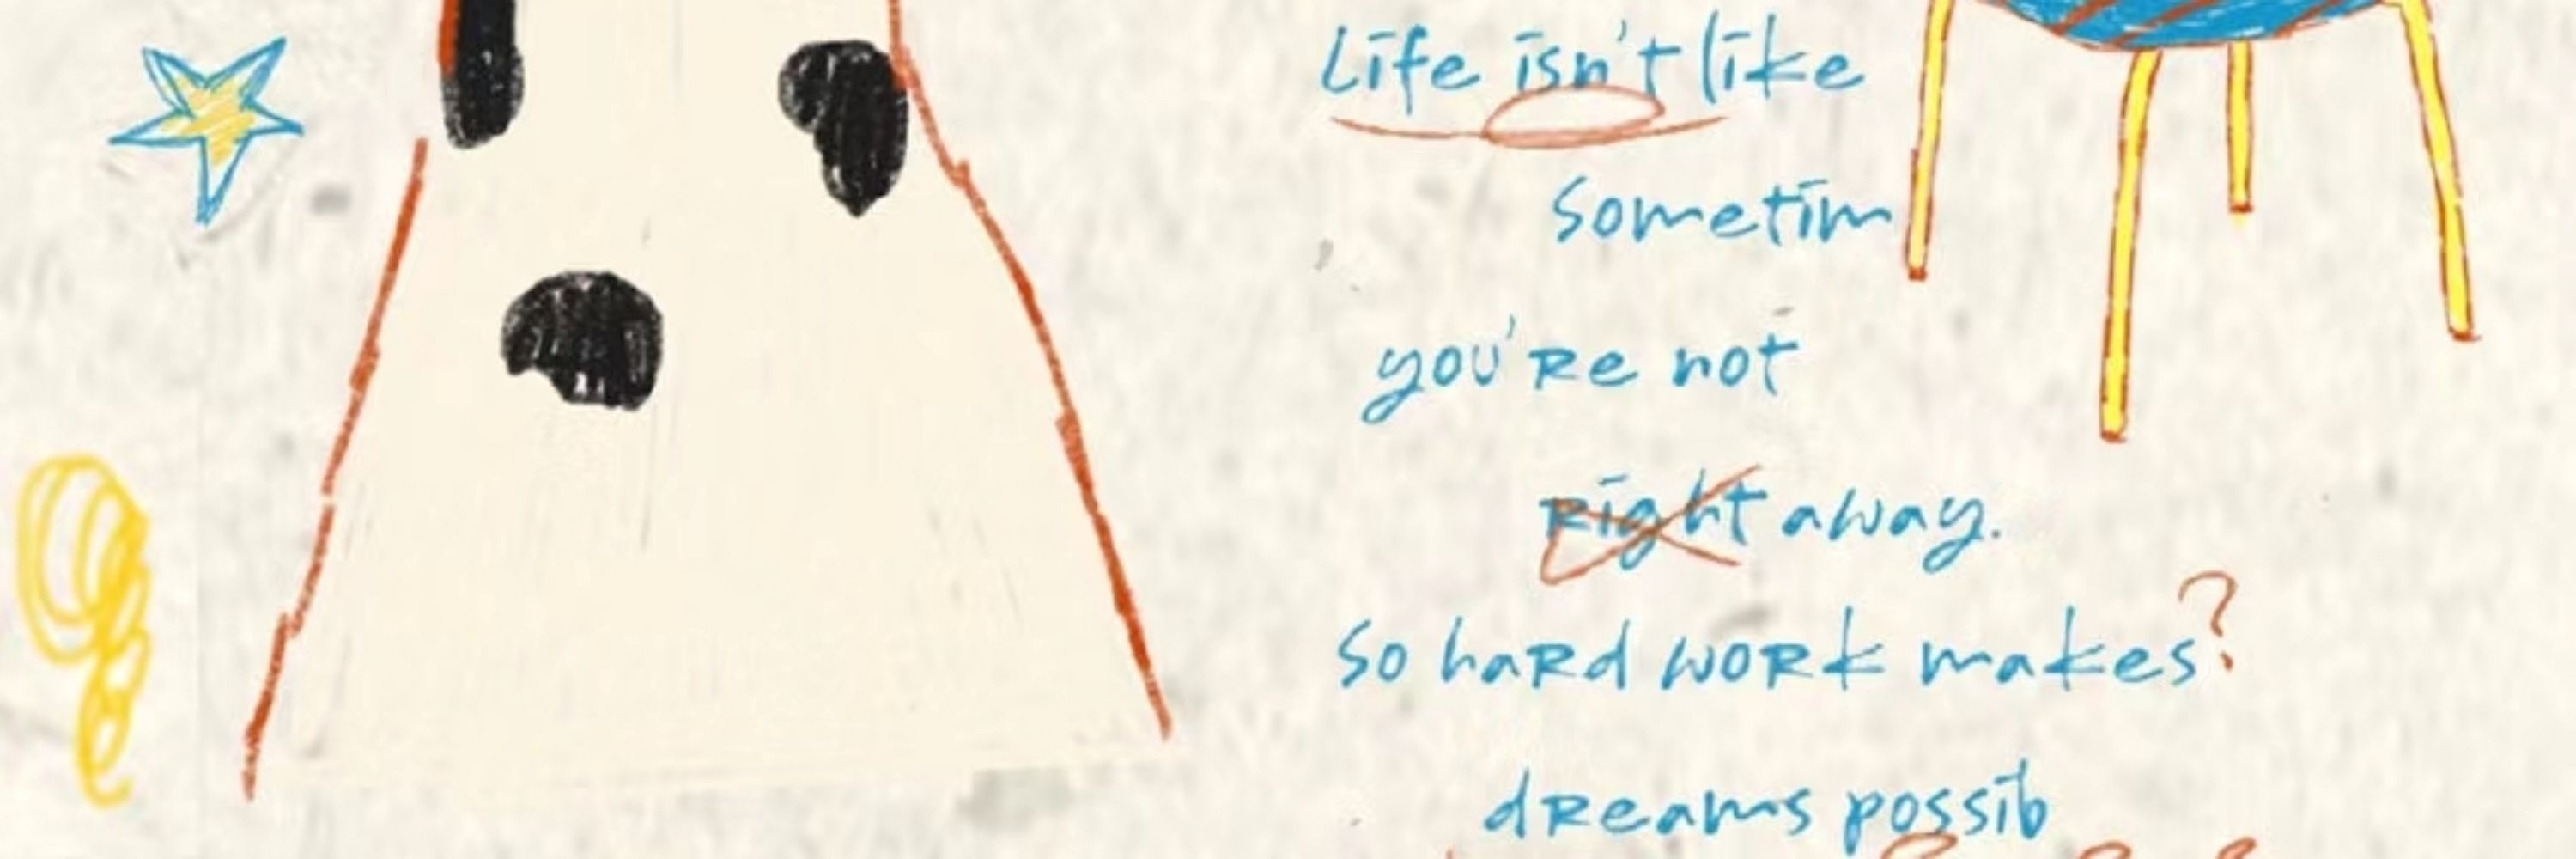 Life isn't like
sometim
you're not
right away.
so hard work makes?
dreams possib